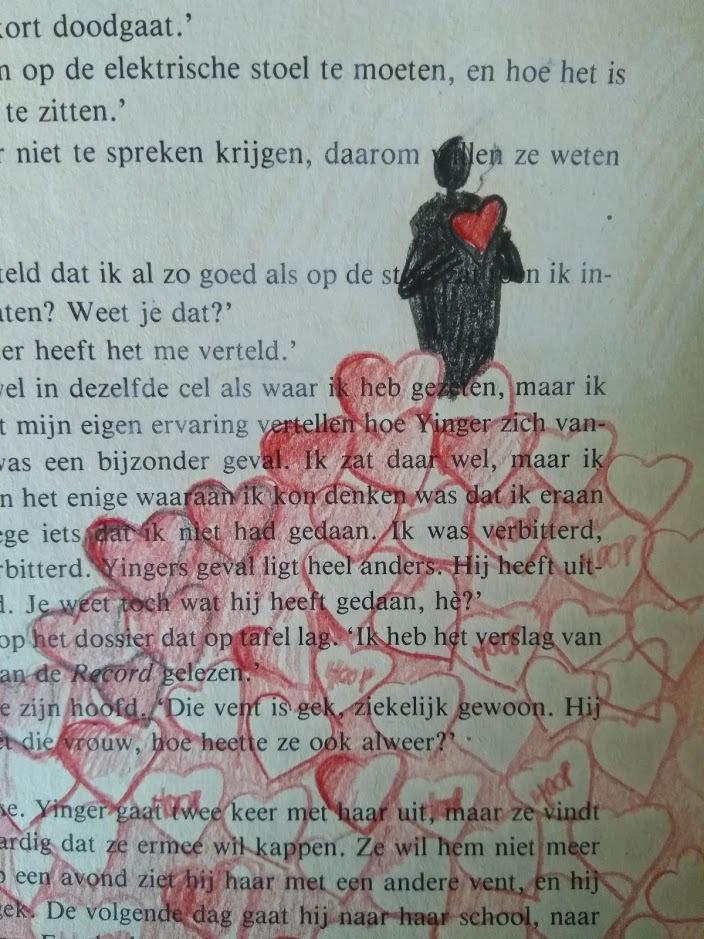 kort doodgaat.’
n op de elektrische stoel te moeten, en hoe het is
te zitten.’
r niet te spreken krijgen, daarom willen ze weten
teld dat ik al zo goed als op de ik in-
aten? Weet je dat?’
er heeft het me verteld.’
vel in dezelfde cel als waar ik heb gezeten, maar ik
t mijn eigen ervaring vertellen hoe Yinger zich van-
was een bijzonder geval. Ik zat daar wel, maar ik
n het enige waaraan ik kon denken was dat ik eraan
ege iets dat ik niet had gedaan. Ik was verbitterd,
HOOP
HOOP
rbitterd. Yingers geval ligt heel anders. Hij heeft uit-
d. Je weet toch wat hij heeft gedaan, hè?’
op het dossier dat op tafel lag. ‘Ik heb het verslag van
HOOP
an de Record gelezen.’
HOOP
e zijn hoofd. ‘Die vent is gek, ziekelijk gewoon. Hij
et die vrouw, hoe heette ze ook alweer?’
HOOP
HOOP
HOOP
se. Yinger gaat twee keer met haar uit, maar ze vindt
ardig dat ze ermee wil kappen. Ze wil hem niet meer
p een avond ziet hij haar met een andere vent, en hij
gek. De volgende dag gaat hij naar haar school, naar